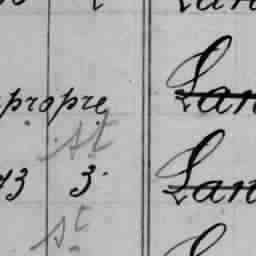 propre Lan
st
73 3 Lan
st